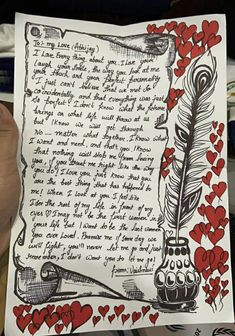 To:- my Love (Abhijay)
I Love everything about you. I Love your
Laugh, your smile, the way you look at me
your touch and your perfect personality
I just can't believe that we met so
coincidentally and that everything was just
so perfect! I don't know what the future
brings or what life will throw at us
but I know we will get through
No matter what together. I know what
I want and need, and that's you. I know
that nothing will stop me from loving
you, if you treat me right like the way
you do! I love you, just know that you
are the best thing that has happened to
me! When I look at you I feel like
I see the rest of my life in front of my
eyes I may not be the first women in
your life but I want to be the last women
you ever loved. Promise me if some day we
will fight, you'll never let me go and just
remember, I don't want you to let me go!